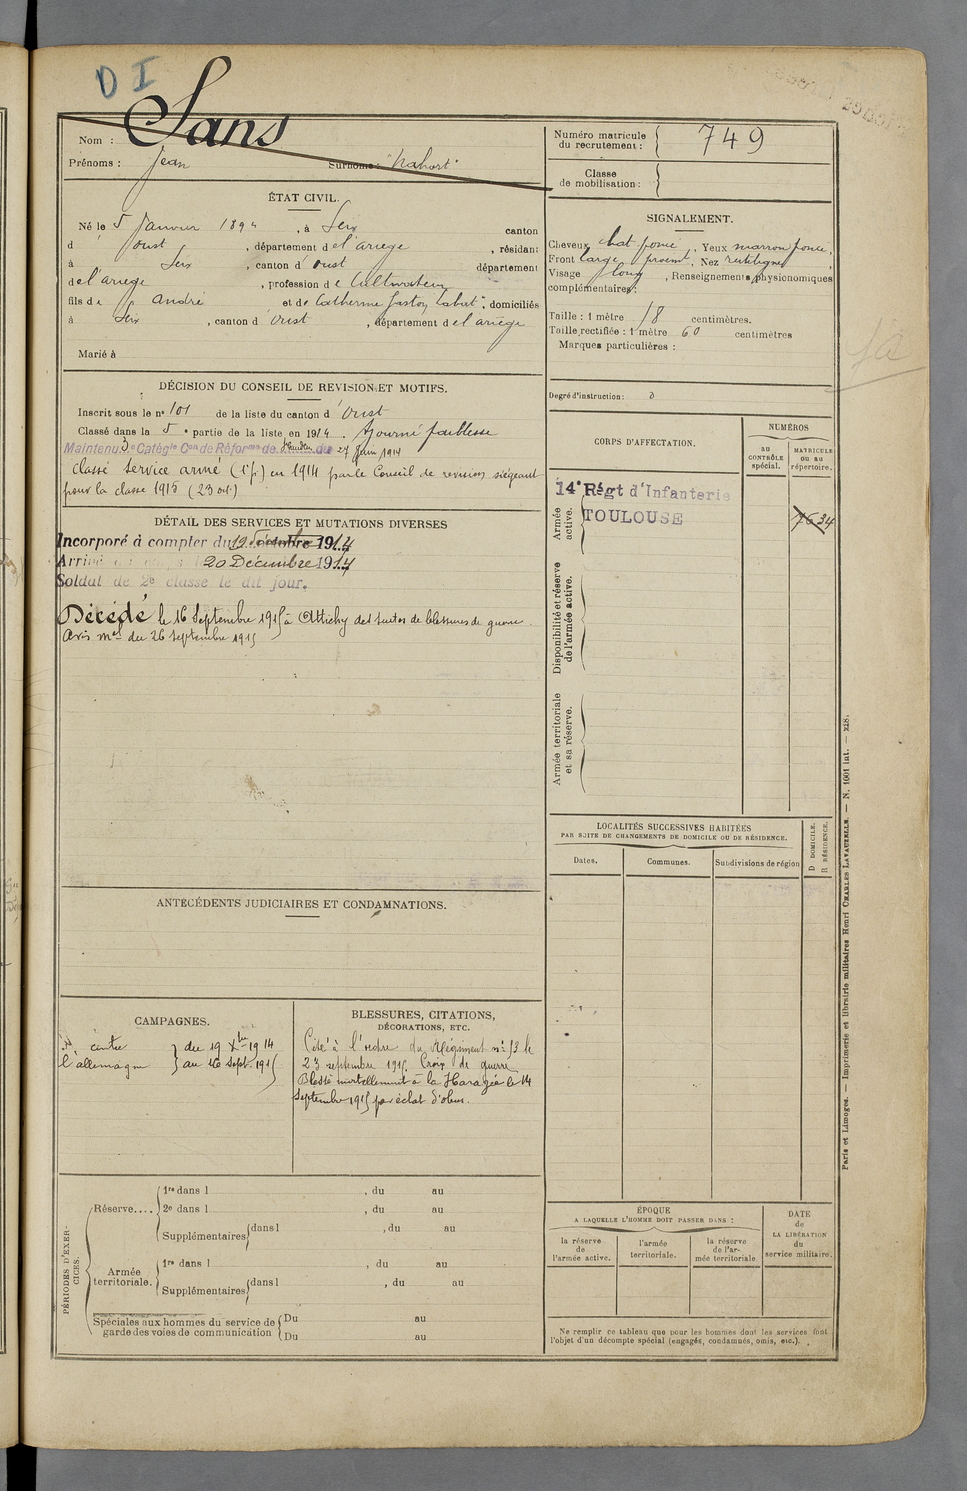 D I
Nom : Sans
Prénoms : Jean Surnoms : "Nahort"
Numéro matricule du recrutement : 749
Classe de mobilisation :
ÉTAT CIVIL.
Né le 5 Janvier 1894, à Seix canton
d'Oust, département de l'ariège, résidant
à Seix, canton d'Oust département
de l'ariège, profession de Cultivateur
fils de André et de Catherine Gaston Cabat ; domiciliés
à Seix, canton d'Oust, département de l'ariège
Marié à
SIGNALEMENT.
Cheveux chat foncé, Yeux marron foncé,
Front large proemt, Nez rectiligne,
Visage long, Renseignements physionomiques
complémentaires :
Taille : 1 mètre 58 centimètres.
Taille rectifiée : 1 mètre 60 centimètres
Marques particulières :
Degré d'instruction : 3
DÉCISION DU CONSEIL DE REVISION ET MOTIFS.
Inscrit sous le n° 101 de la liste du canton d'Oust
Classé dans la 5e partie de la liste en 1914. Ajourné faiblesse
Maintenu 3e Catégie Con de Réforme de du 27 Juin 1914
Classé Service armé (1e p.) en 1914 par le Conseil de revision siégeant
pour la classe 1915 (23 oct.)
DÉTAIL DES SERVICES ET MUTATIONS DIVERSES
Incorporé à compter du 19 Décembre 1914
Arrivé au corps le 20 Décembre 1914
Soldat de 2e classe le dit jour.
Décédé le 16 Septembre 1915 à Attichy des suites de blessures de guerre.
Avis mel du 26 septembre 1915
CORPS D'AFFECTATION.
NUMÉROS
au CONTRÔLE spécial.
MATRICULE ou au répertoire.
Armée active.
14e Régt d'Infanterie
TOULOUSE
7634
Disponibilité et réserve de l'armée active.
Armée territoriale et sa réserve.
LOCALITÉS SUCCESSIVES HABITÉES
PAR SUITE DE CHANGEMENTS DE DOMICILE OU DE RÉSIDENCE.
Dates. Communes. Subdivisions de région D DOMICILE. R RÉSIDENCE.
ANTÉCÉDENTS JUDICIAIRES ET CONDAMNATIONS.
CAMPAGNES.
contre du 19 Xbre 1914
l'allemagne au 16 Sept. 1915
BLESSURES, CITATIONS,
DÉCORATIONS, ETC.
Cité à l'ordre du Régiment n° 13 le
23 septembre 1915. Croix de guerre
Blessé mortellement à la Harazée le 14
Septembre 1915 par éclat d'obus.
PÉRIODES D'EXERCICES.
Réserve.... 1re dans l , du au
2e dans l , du au
Supplémentaires dans l , du au
Armée territoriale. 1re dans l , du au
Supplémentaires dans l , du au
Spéciales aux hommes du service de garde des voies de communication Du au
Du au
ÉPOQUE
A LAQUELLE L'HOMME DOIT PASSER DANS :
la réserve de l'armée active. l'armée territoriale. la réserve de l'armée territoriale.
DATE de LA LIBÉRATION du service militaire.
Ne remplir ce tableau que pour les hommes dont les services font
l'objet d'un décompte spécial (engagés, condamnés, omis, etc.).
Paris et Limoges. — Imprimerie et librairie militaires Henri CHARLES LAVAUZELLE. — N. 1001 int. — 218.